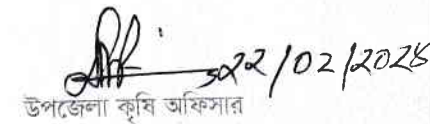 22/02/2024
উপজেলা কৃষি অফিসার